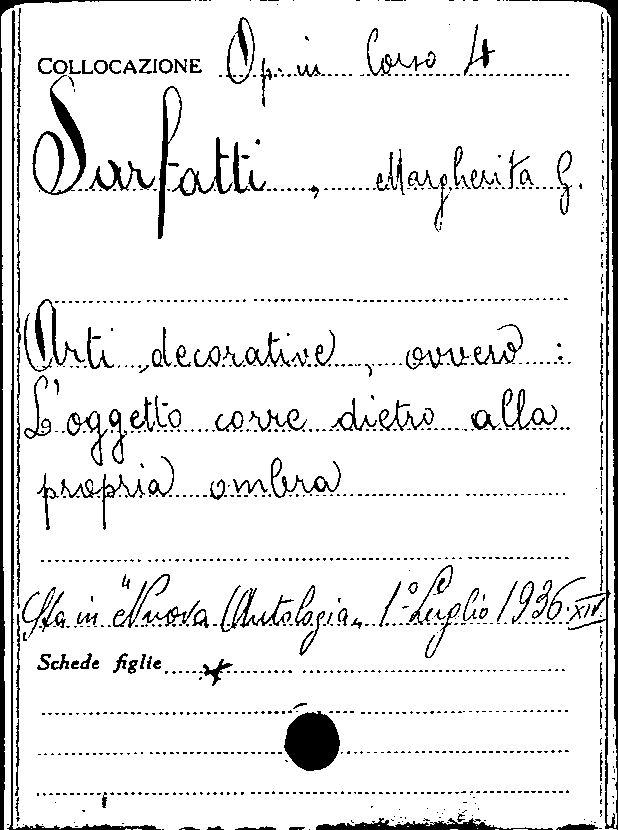 COLLOCAZIONE Op. in Corso 4
Sarfatti, Margherita G.
Arti decorative, ovvero :
L'oggetto corre dietro alla
propria ombra
Sta in "Nuova Antologia„ 1° Luglio 1936. XIV.
Schede figlie